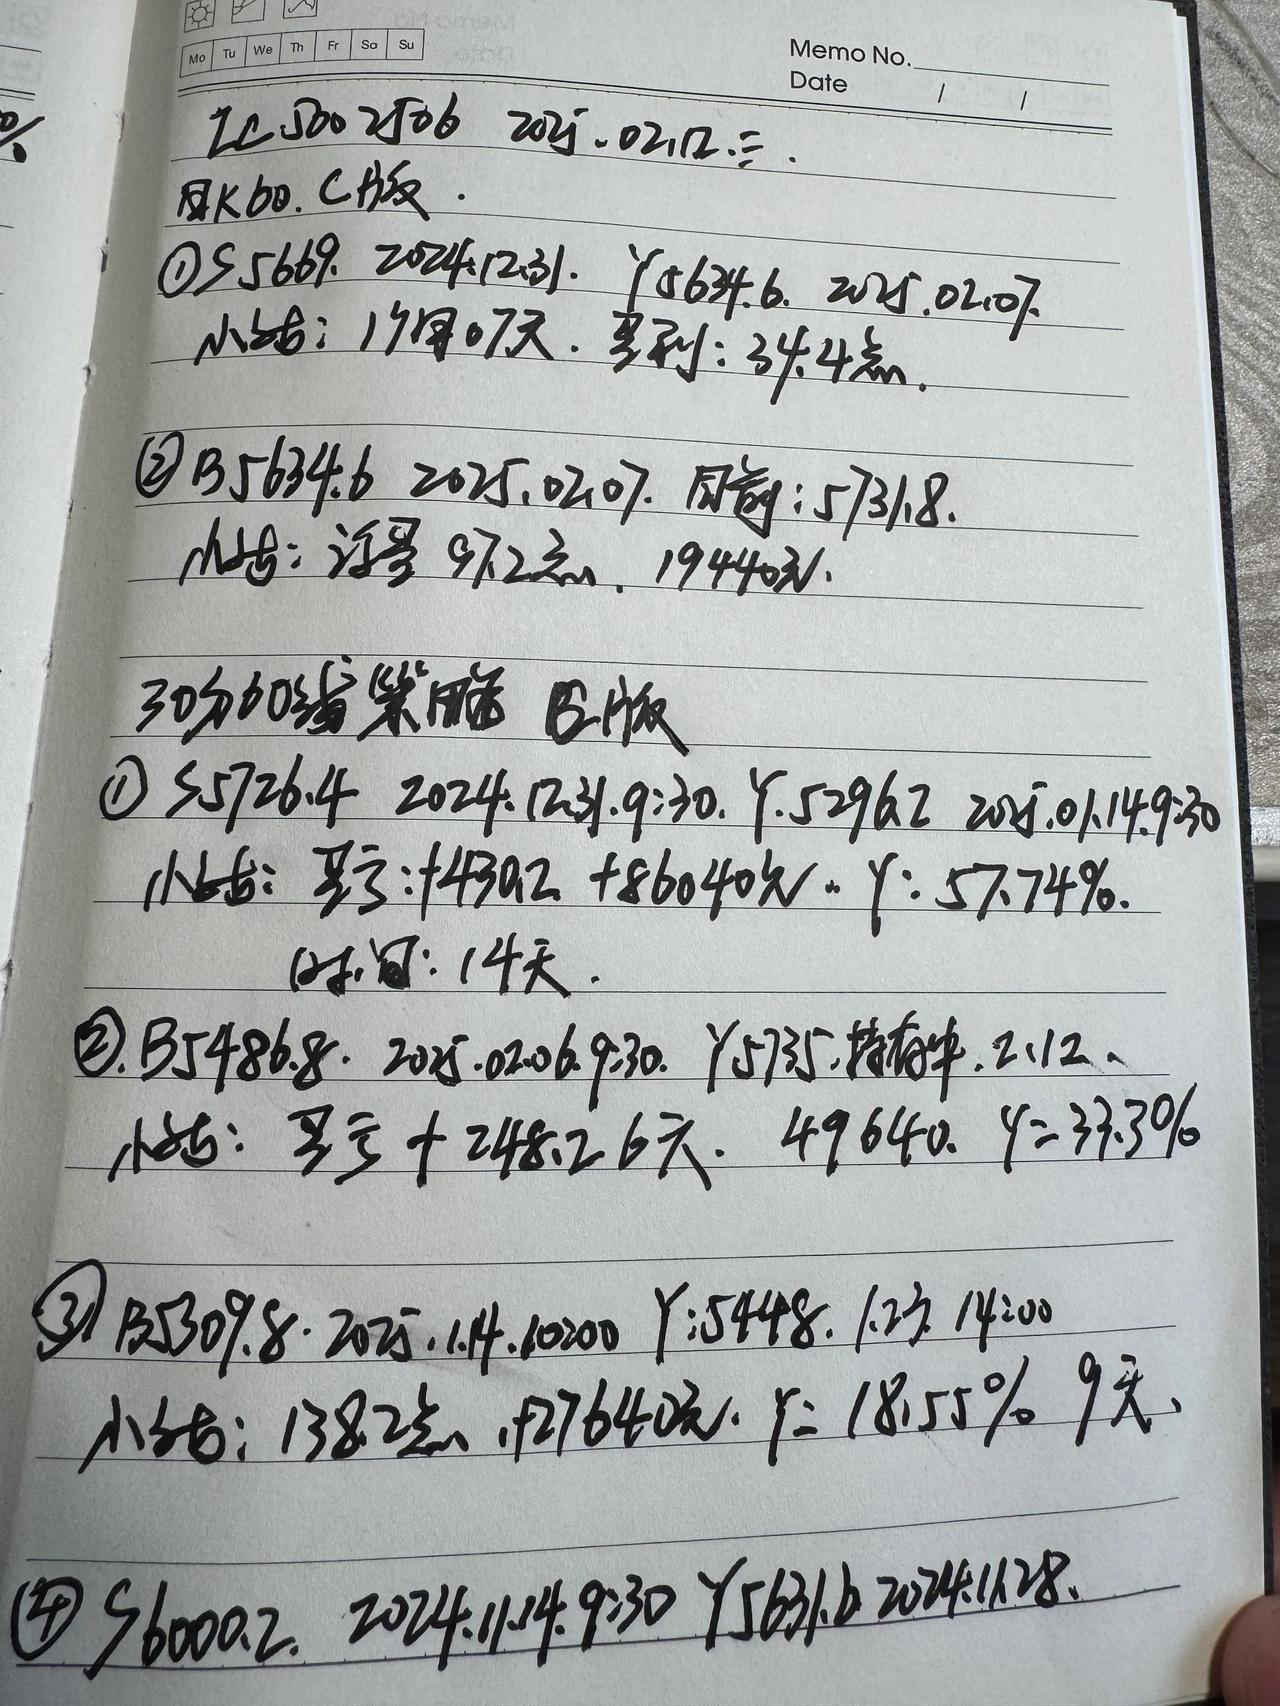 Mo Tu We Th Fr Sa Su
Memo No.
Date / /
IC500 2506 2025.02.12.三.
日K60.C版.
①S5669. 2024.12.31. Y5634.6. 2025.02.07.
小结: 1个月07天. 盈利: 34.4点.
②B5634.6 2025.02.07. 目前:5731.8.
小结: 浮盈 97.2点. 19440元.
30分60线策略 B版
① S5726.4 2024.12.31.9:30. Y.5296.2 2025.01.14.9:30
小结: 盈亏:+430.2 +86040元. Y: 57.74%.
时间: 14天.
②.B5486.8. 2025.02.06.9:30. Y5735.持有中.2.12.
小结: 盈亏+248.2 6天. 49640. Y=33.3%
③ B5309.8. 2025.1.14.10:00 Y:5448. 1.23. 14:00
小结: 138.2点.+27640元. Y= 18.55% 9天.
④ S6000.2. 2024.11.14.9:30 Y5631.6 2024.11.28.